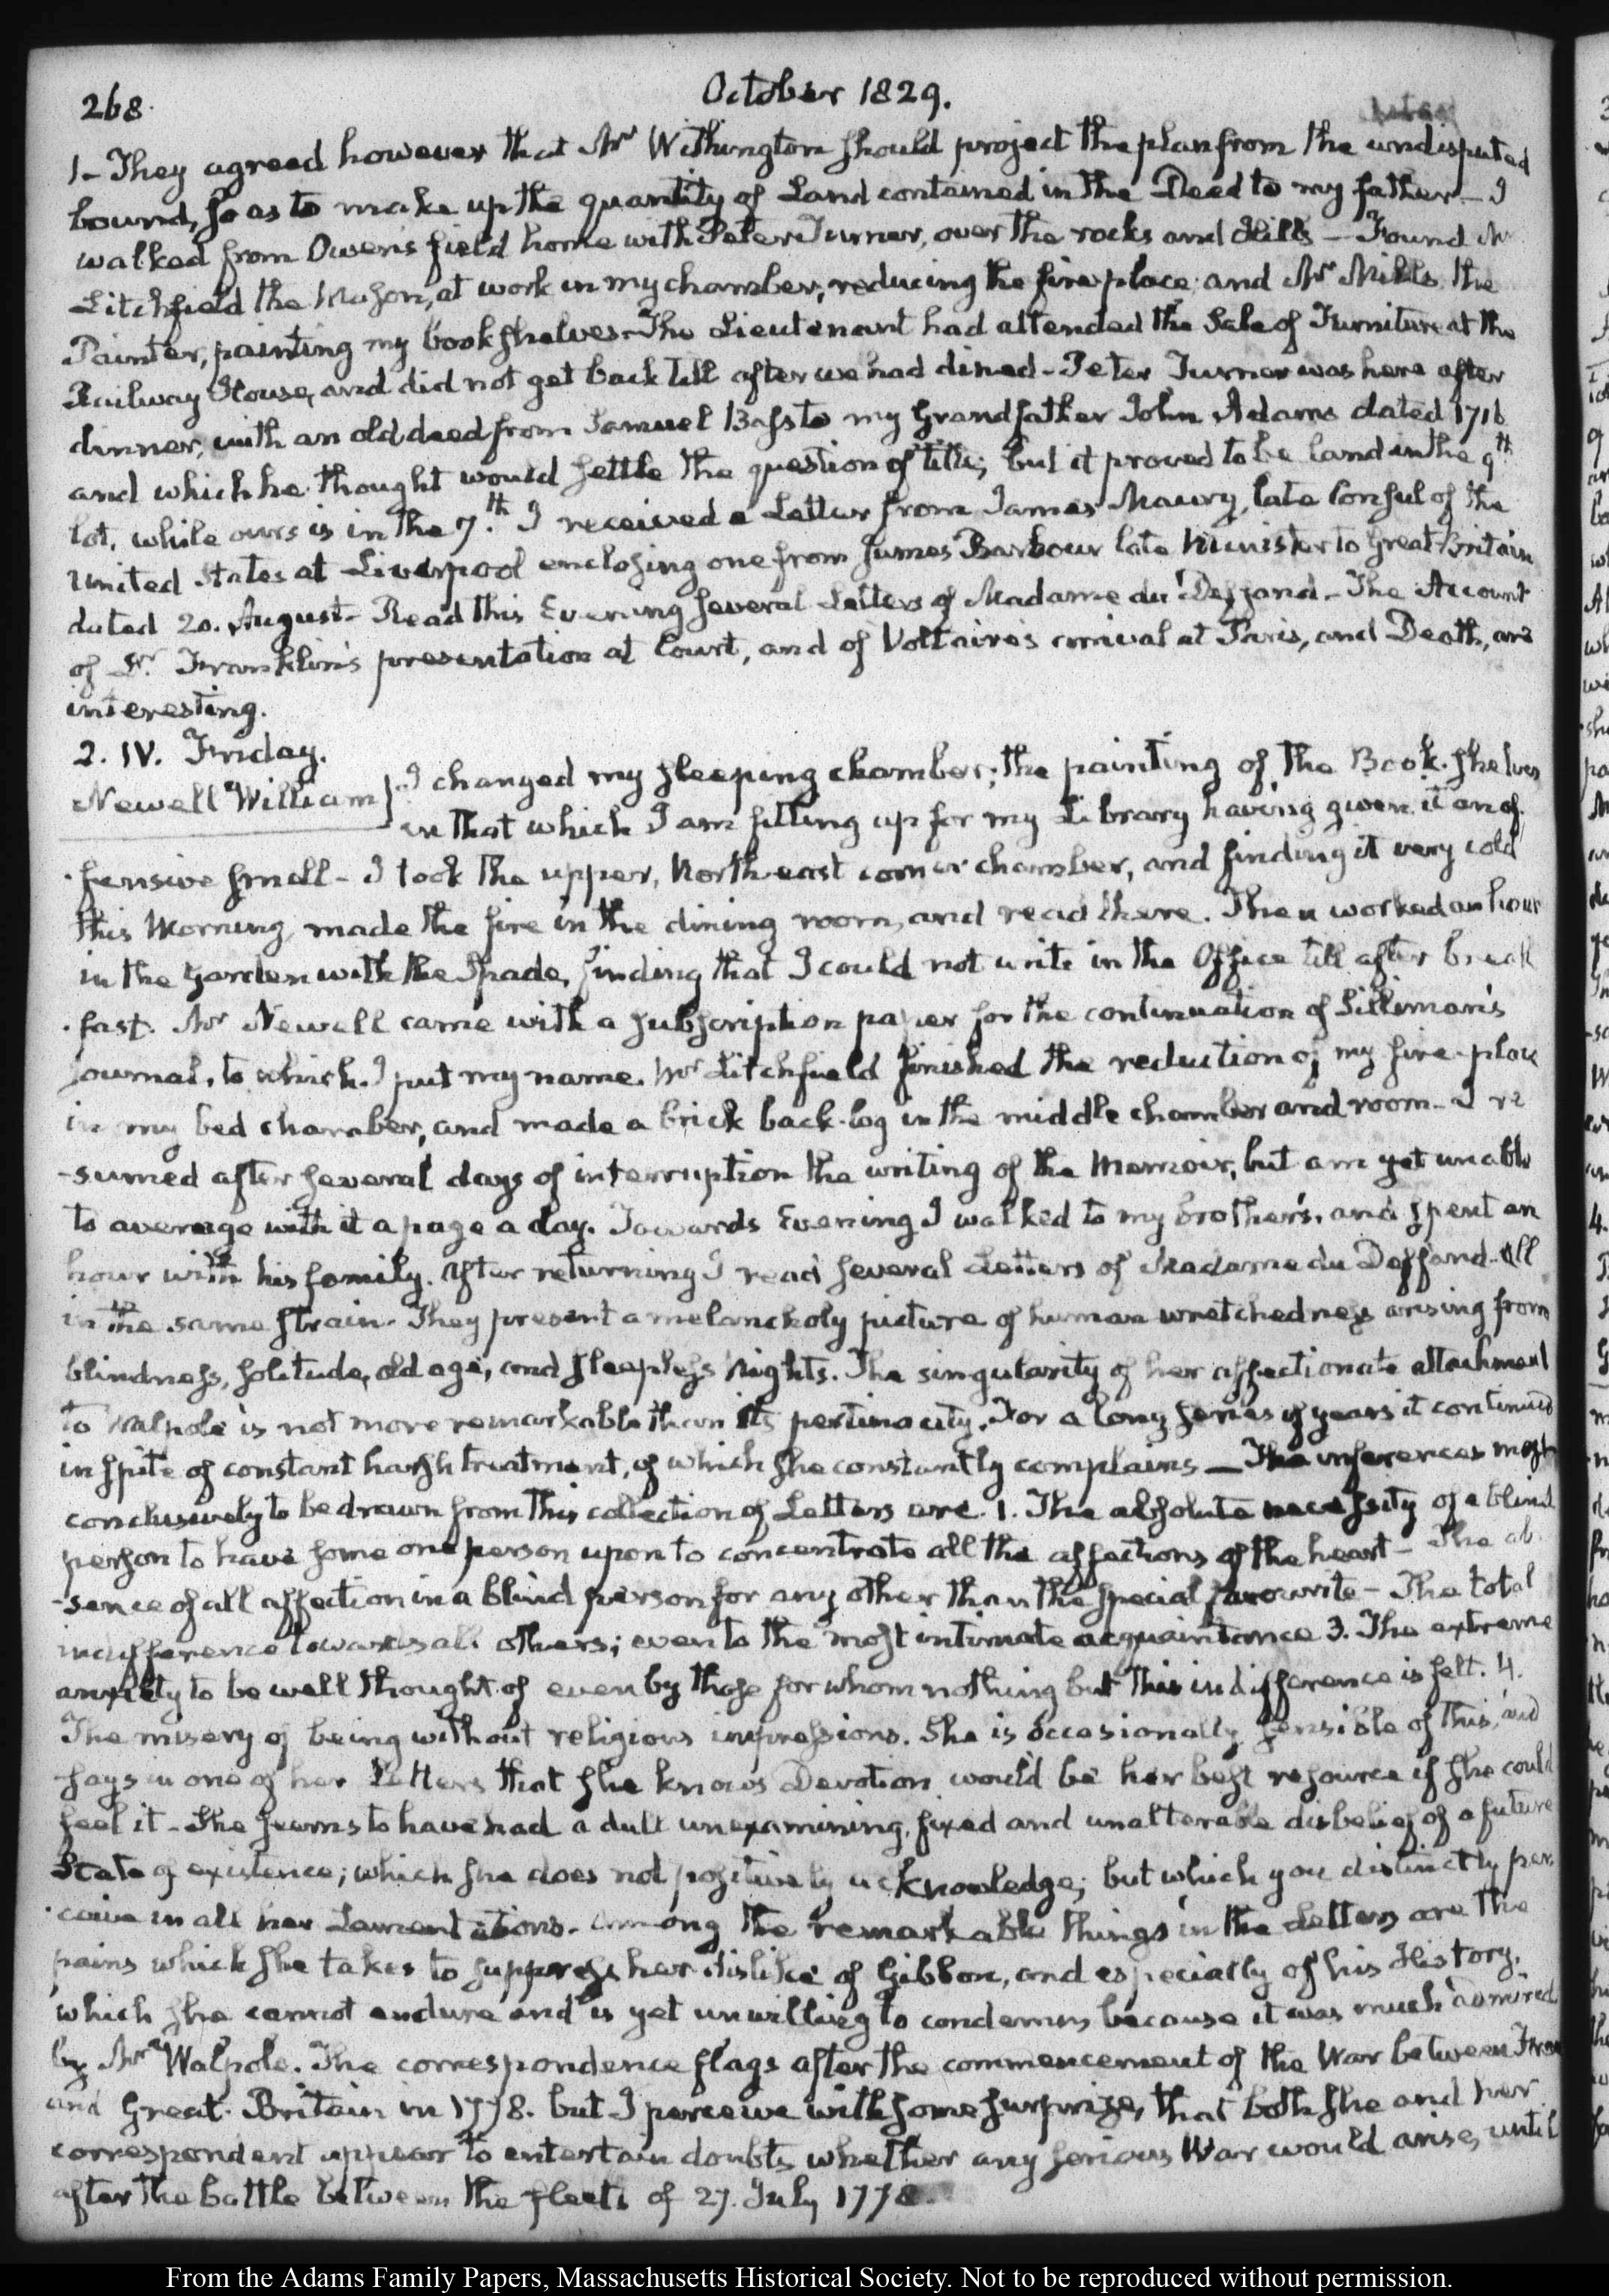 268.
October 1829.
1– They agreed however that Mr Withington should project the plan from the undisputed
bound, so as to make up the quantity of Land contained in the Deed to my father – I
walked from Owen's field home with Peter Turner, over the rocks and Hills – Found Mr
Litchfield the Mason, at work in my chamber, reducing the fire place; and Mr Mills the
Painter, painting my book shelves – The Lieutenant had attended the Sale of Furniture at the
Railway House, and did not get back till after we had dined – Peter Turner was here after
dinner, with an old deed from Samuel Bass to my Grandfather John Adams dated 1716
and which he thought would settle the question of title; but it proved to be land in the 9th
lot, while ours is in the 7.th I received a Letter from James Maury, late Consul of the
United States at Liverpool enclosing one from James Barbour late Minister to Great-Britain
dated 20. August – Read this Evening several Letters of Madame du Deffand – The Account
of Dr Franklin's presentation at Court, and of Voltaire's arrival at Paris, and Death, are
interesting.
2. IV. Friday.
Newell William
I changed my sleeping chamber; the painting of the Book-shelves
in that which I am fitting up for my Library having given it an of
-fensive smell – I took the upper, North east corner chamber, and finding it very cold
this Morning, made the fire in the dining room, and read there. Then worked an hour
in the garden with the Spade, finding that I could not write in the Office till after break
-fast. Mr Newell came with a subscription paper for the continuation of Silliman's
Journal, to which I put my name. Mr Litchfield finished the reduction of my fire-place
in my bed chamber, and made a brick back-log in the middle chamber and room – I re
-sumed after several days of interruption the writing of the Memoir, but am yet unable
to average with it a page a day. Towards Evening I walked to my brother's, and spent an
hour with his family. After returning I read several Letters of Madame du Deffand – All
in the same strain – They present a melancholy picture of human wretchedness arising from
blindness, solitude, old age, and sleepless Nights. The singularity of her affectionate attachment
to Walpole is not more remarkable than its pertinacity. For a long series of years it continued
in spite of constant harsh treatment, of which she constantly complains – The inferences most
conclusively to be drawn from this collection of Letters are 1. The absolute necessity of a blind
person to have some one person upon to concentrate all the affections of the heart – The ab
-sence of all affection in a blind person for any other than the special favourite – The total
indifference towards all others; even to the most intimate acquaintance 3. The extreme
anxiety to be well thought of even by those for whom nothing but this indifference is felt. 4.
The misery of being without religious impressions. She is occasionally sensible of this, and
says in one of her Letters that she knows Devotion would be her best resource if she could
feel it – She seems to have had a dull unexamining, fixed and unalterable disbelief of a future
State of existence; which she does not positively acknowledge; but which you distinctly per
-ceive in all her Lamentations. Among the remarkable things in the Letters are the
pains which she takes to suppress her dislike of Gibbon, and especially of his History,
which she cannot endure and is yet unwilling to condemn because it was much admired
by Mr Walpole. The correspondence flags after the commencement of the War between France
and Great-Britain in 1778. but I perceive with some surprize, that both she and her
correspondent appear to entertain doubts whether any serious War would arise, until
after the battle between the fleets of 27. July 1778.
From the Adams Family Papers, Massachusetts Historical Society. Not to be reproduced without permission.